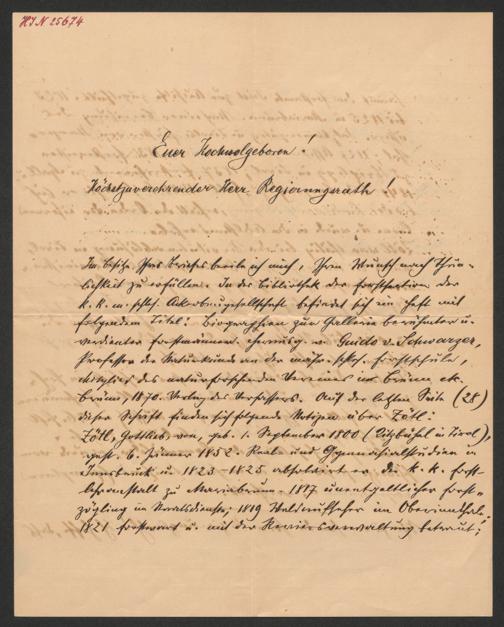 HIN 25674
Euer Hochwolgeboren!
Höchstzuverehrender Herr Regierungsrath!
Im Besitze Ihres Briefes beeile ich mich, Ihren Wunsch nach Thun-
lichkeit zu erfüllen. In der Bibliothek der Forstsection der
k. k. m. schl. Ackerbaugesellschaft befindet sich ein Heft mit
folgendem Titel: Biographien zur Gallerie berühmter u.
verdienter Forstmänner. Herausg. v. Guido v. Schwarzer,
Professor der Naturkunde an der mähr. schl. Forstschule,
Mitglied des naturforschenden Vereines in Brünn etc.
Brünn, 1870. Verlag des Verfassers. Auf der letzten Seite (28)
dieser Schrift finden sich folgende Notizen über Zötl:
Zötl, Gottlieb von, geb. 1. September 1800 (Kitzbühel in Tirol),
gest. 6. Jänner 1852. Real- und Gymnasialstudien in
Innsbruck u. 1823-1825 absolvirt er die k. k. Forst-
lehranstalt zu Mariabrunn. 1817 unentgeltlicher Forst-
zögling im Staatsdienste; 1819 Waldaufseher im Oberinnthale;
1821 Forstwart u. mit der Revierverwaltung betraut;